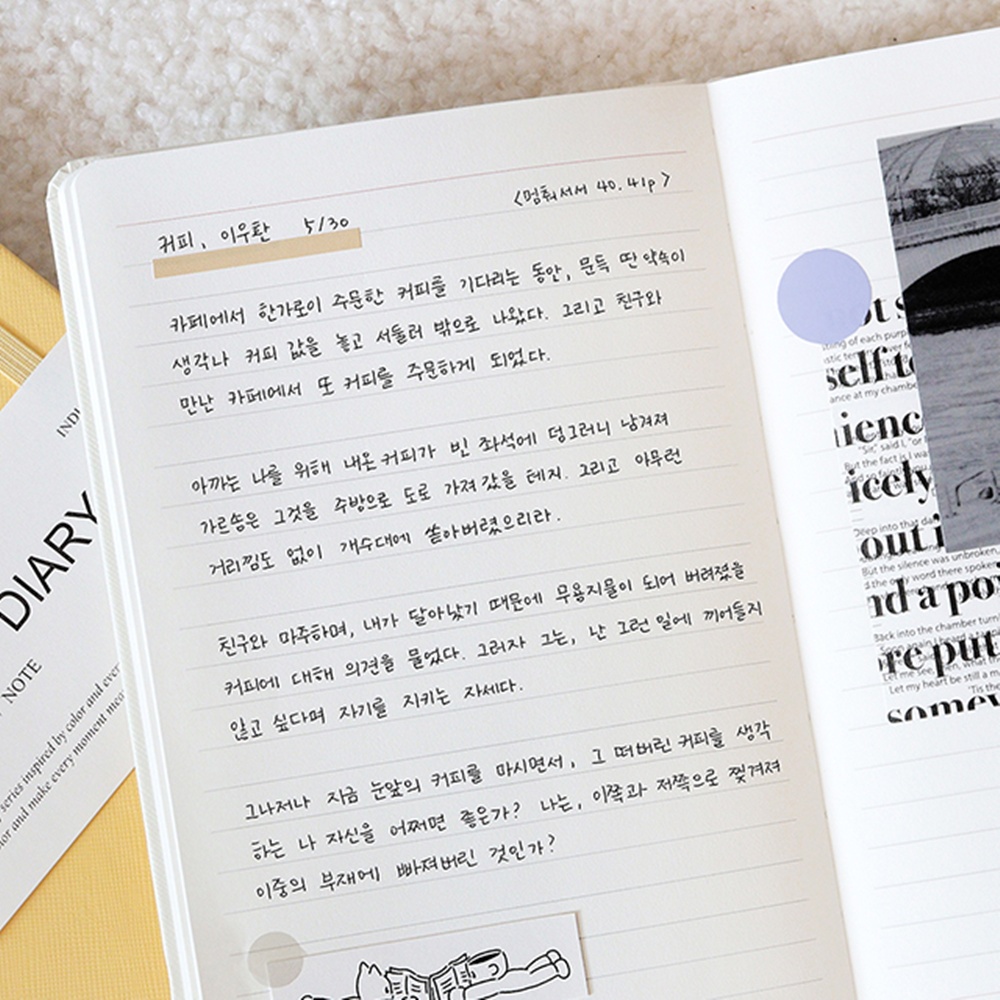 <멈춰서서 40.41p>
커피, 이우환 5/30
카페에서 한가로이 주문한 커피를 기다리는 동안, 문득 딴 약속이
생각나 커피 값을 놓고 서둘러 밖으로 나왔다. 그리고 친구와
만난 카페에서 또 커피를 주문하게 되었다.
아까는 나를 위해 내온 커피가 빈 좌석에 덩그러니 남겨져
가르송은 그것을 주방으로 도로 가져갔을 테지. 그리고 아무런
거리낌도 없이 개수대에 쏟아버렸으리라.
친구와 마주하며, 내가 달아났기 때문에 무용지물이 되어 버려졌을
커피에 대해 의견을 물었다. 그러자 그는, 난 그런 일에 끼어들지
않고 싶다며 자기를 지키는 자세다.
그나저나 지금 눈앞의 커피를 마시면서, 그 떠버린 커피를 생각
하는 나 자신을 어쩌면 좋은가? 나는, 이쪽과 저쪽으로 찢겨져
이중의 부재에 빠져버린 것인가?
DIARY
NOTE
series inspired by color and
and make every moment
self to
icely
out
nd a
re put
"Sir," said I, "or
But the fact is I
Deep into that
But the silence was unbroken,
the only word there spoken
Back into the chamber
Let my heart be still a